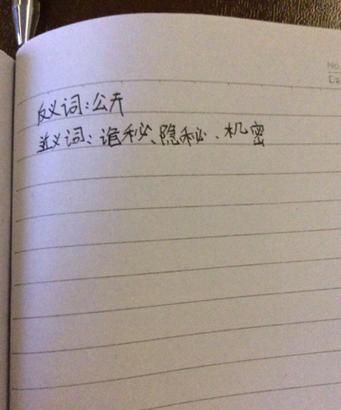 反义词:公开
近义词:诡秘、隐秘、机密
No.
Da